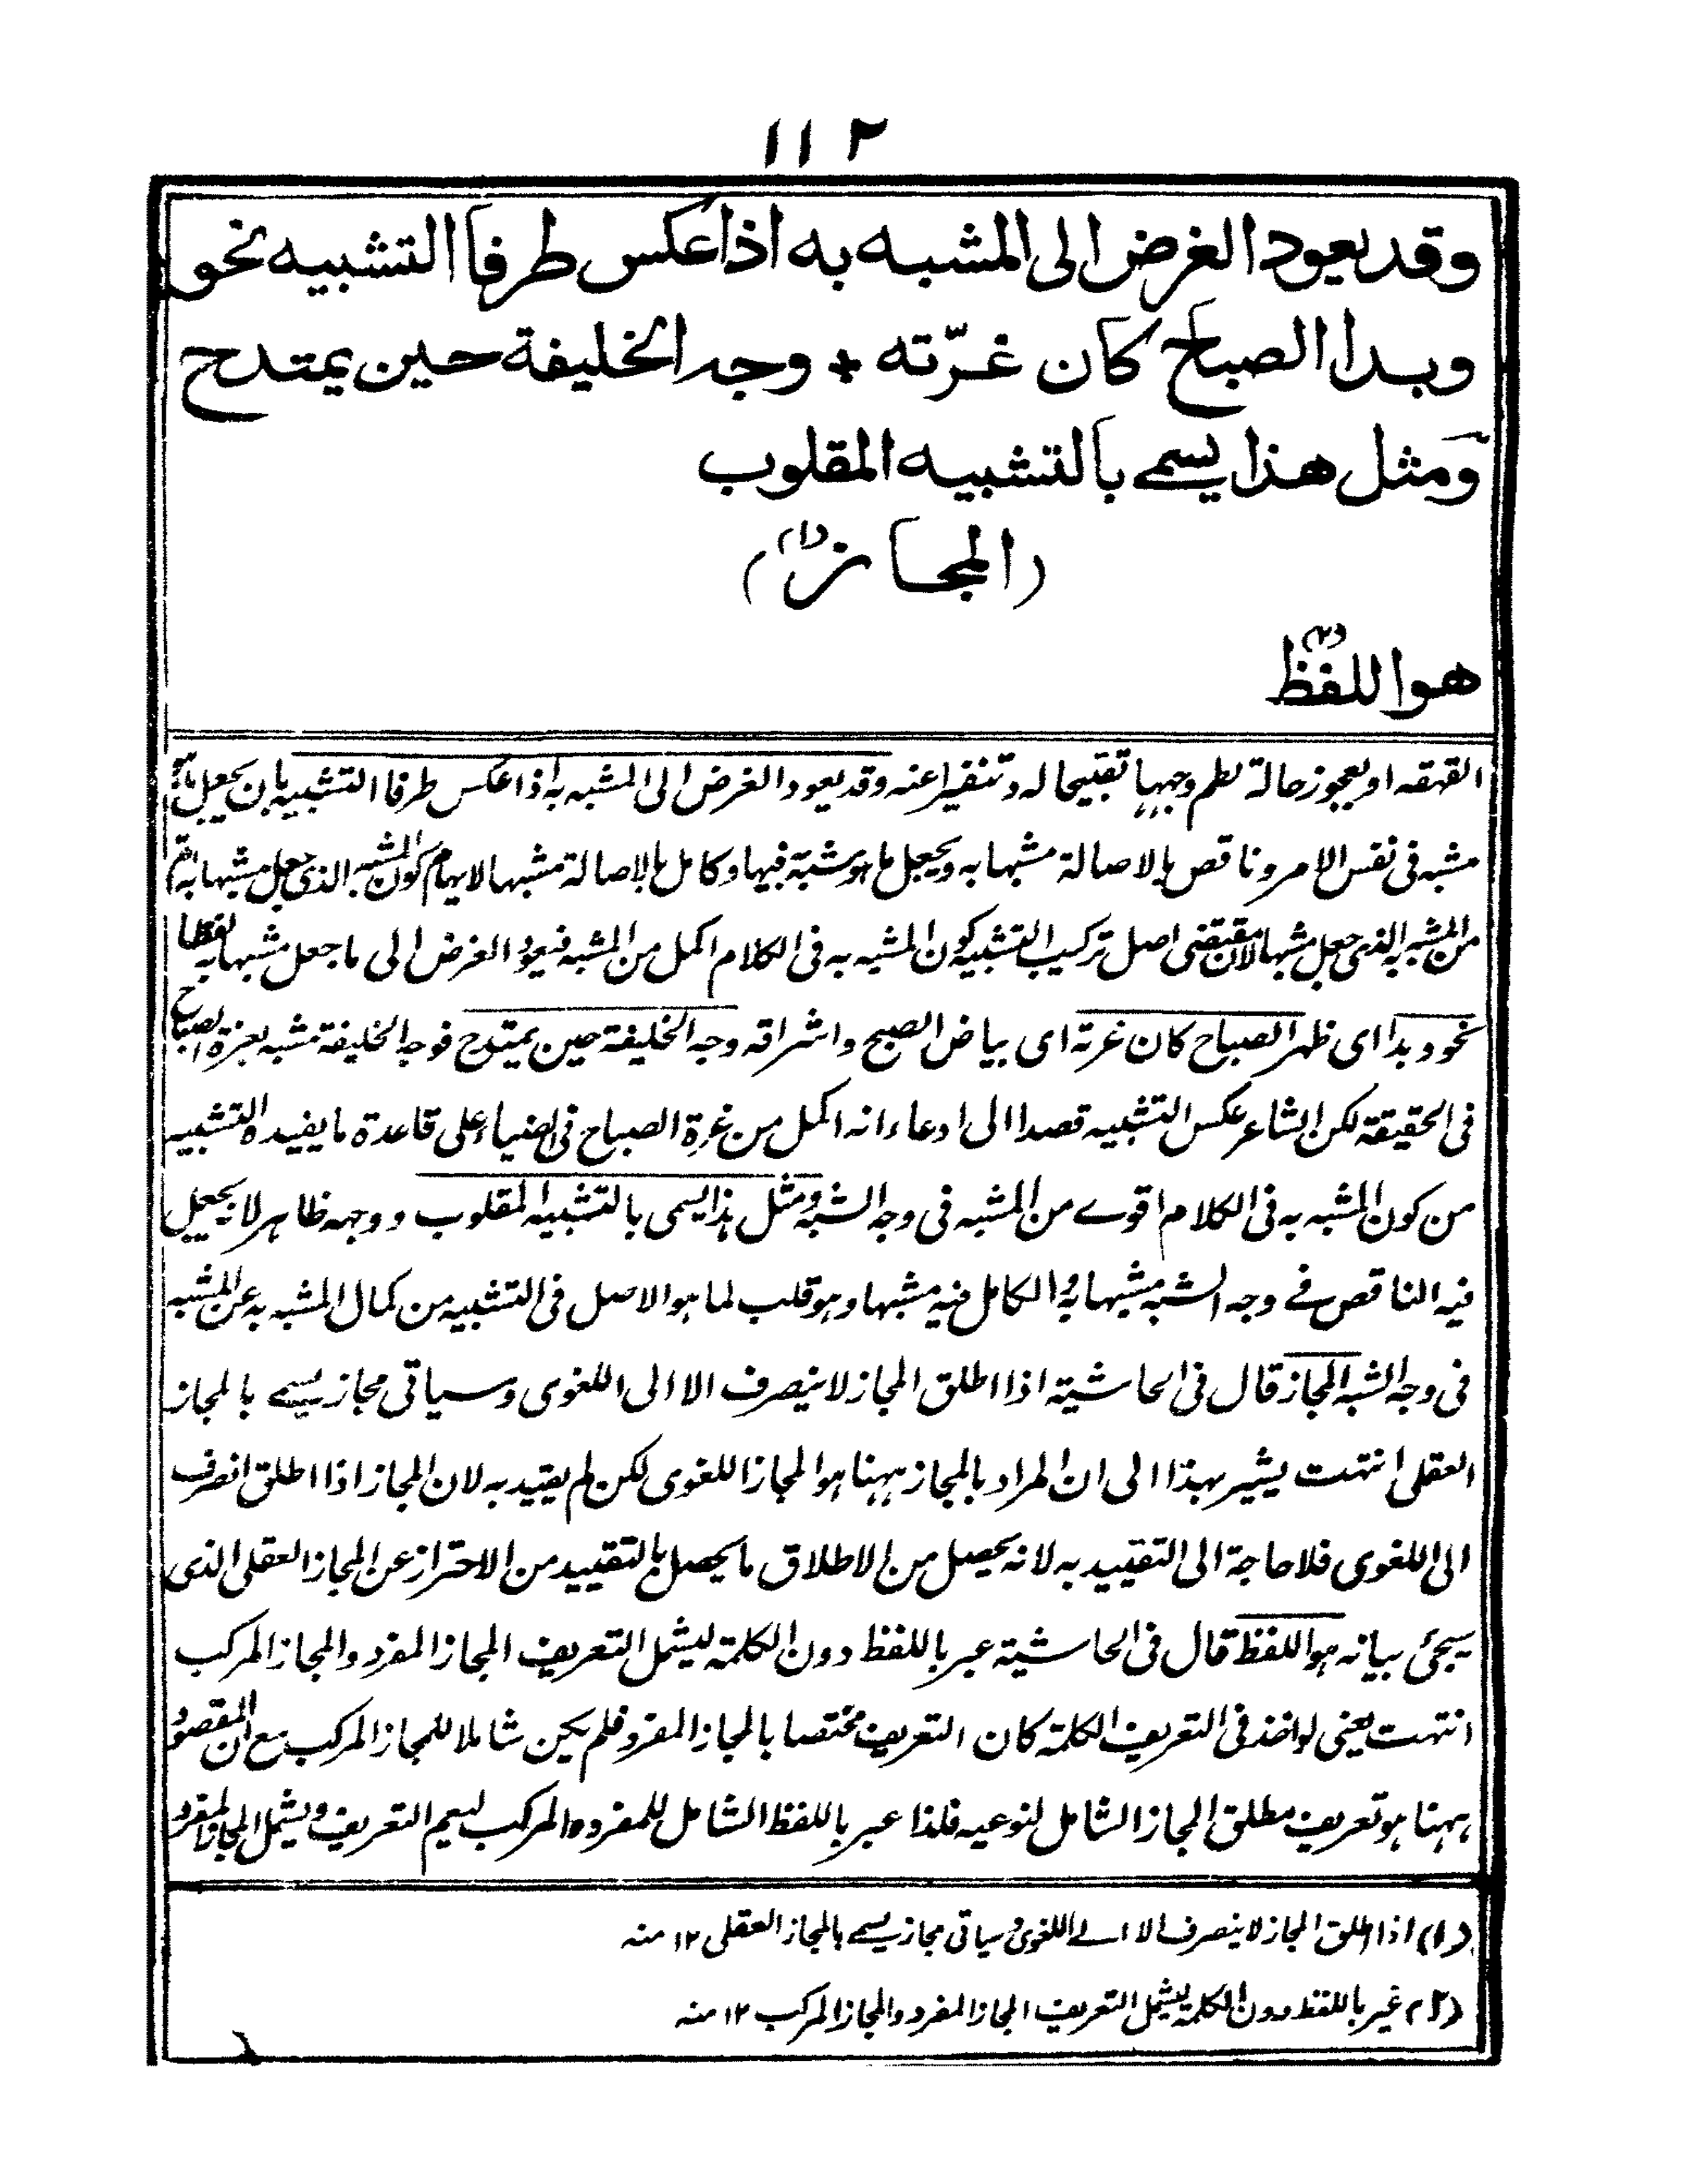 ١١٢
وقد يعود الغرض الى المشبه به اذا عكس طرفا التشبيه نحو
وبدا الصباح كان غرّته + وجه الخليفة حين يمتدح
ومثل هذا يسمے بالتشبيه المقلوب
(المجاز(١))
هو اللفظ(٢)
القهقه او بعجوز حالة لطم وجهها تقبيحا له وتنفيرا عنه وقد يعود الغرض الى المشبه به اذا عكس طرفا التشبيه بان يجعل ما هو
مشبه فى نفس الامر وناقص بالاصالة مشبها به ويجعل ما هو مشبه به فيها وكامل بالاصالة مشبها لايهام كون المشبه الذى جعل مشبها به اتم
من المشبه به الذى جعل مشبها لان مقتضى اصل تركيب التشبيه كون المشبه به فى الكلام اكمل من المشبه فيعود الغرض الى ما جعل مشبها به لفظا
نحو وبدا اى ظهر الصباح كان غرته اى بياض الصبح واشراقه وجه الخليفة حين يمتدح فوجه الخليفة مشبه بغرة الصباح
فى الحقيقة لكن الشاعر عكس التشبيه قصدا الى ادعاء انه اكمل من غرة الصباح فى الضياء على قاعدة ما يفيده التشبيه
من كون المشبه به فى الكلام اقوے من المشبه فى وجه الشبه ومثل هذا يسمى بالتشبيه المقلوب ووجهه ظاهر لانه يجعل
فيه الناقص فے وجه الشبه مشبها به والكامل فيه مشبها وهو قلب لما هو الاصل فى التشبيه من كمال المشبه به عن المشبه
فى وجه الشبه المجاز قال فى الحاشية اذا اطلق المجاز لا ينصرف الا الى اللغوى وسياتى مجاز يسمے بالمجاز
العقلى انتهت يشير بهذا الى ان المراد بالمجاز ههنا هو المجاز اللغوى لكن لم يقيد به لان المجاز اذا اطلق انصرف
الى اللغوى فلا حاجة الى التقييد به لانه يحصل من الاطلاق ما يحصل بالتقييد من الاحتراز عن المجاز العقلى الذى
سيجئ بيانه هو اللفظ قال فى الحاشية عبر باللفظ دون الكلمة ليشمل التعريف المجاز المفرد والمجاز المركب
انتهت يعنى لو اخذ فى التعريف الكلمة كان التعريف مختصا بالمجاز المفرد فلم يكن شاملا للمجاز المركب مع ان المقصود
ههنا هو تعريف مطلق المجاز الشامل لنوعيه فلذا عبر باللفظ الشامل للمفرد والمركب ليعم التعريف ويشمل المجاز المفرد
(١) اذا اطلق المجاز لا ينصرف الا الے اللغوى وسياتى مجاز يسمے بالمجاز العقلى ١٢ منه
(٢) عبر باللفظ دون الكلمة ليشمل التعريف المجاز المفرد والمجاز المركب ١٢ منه